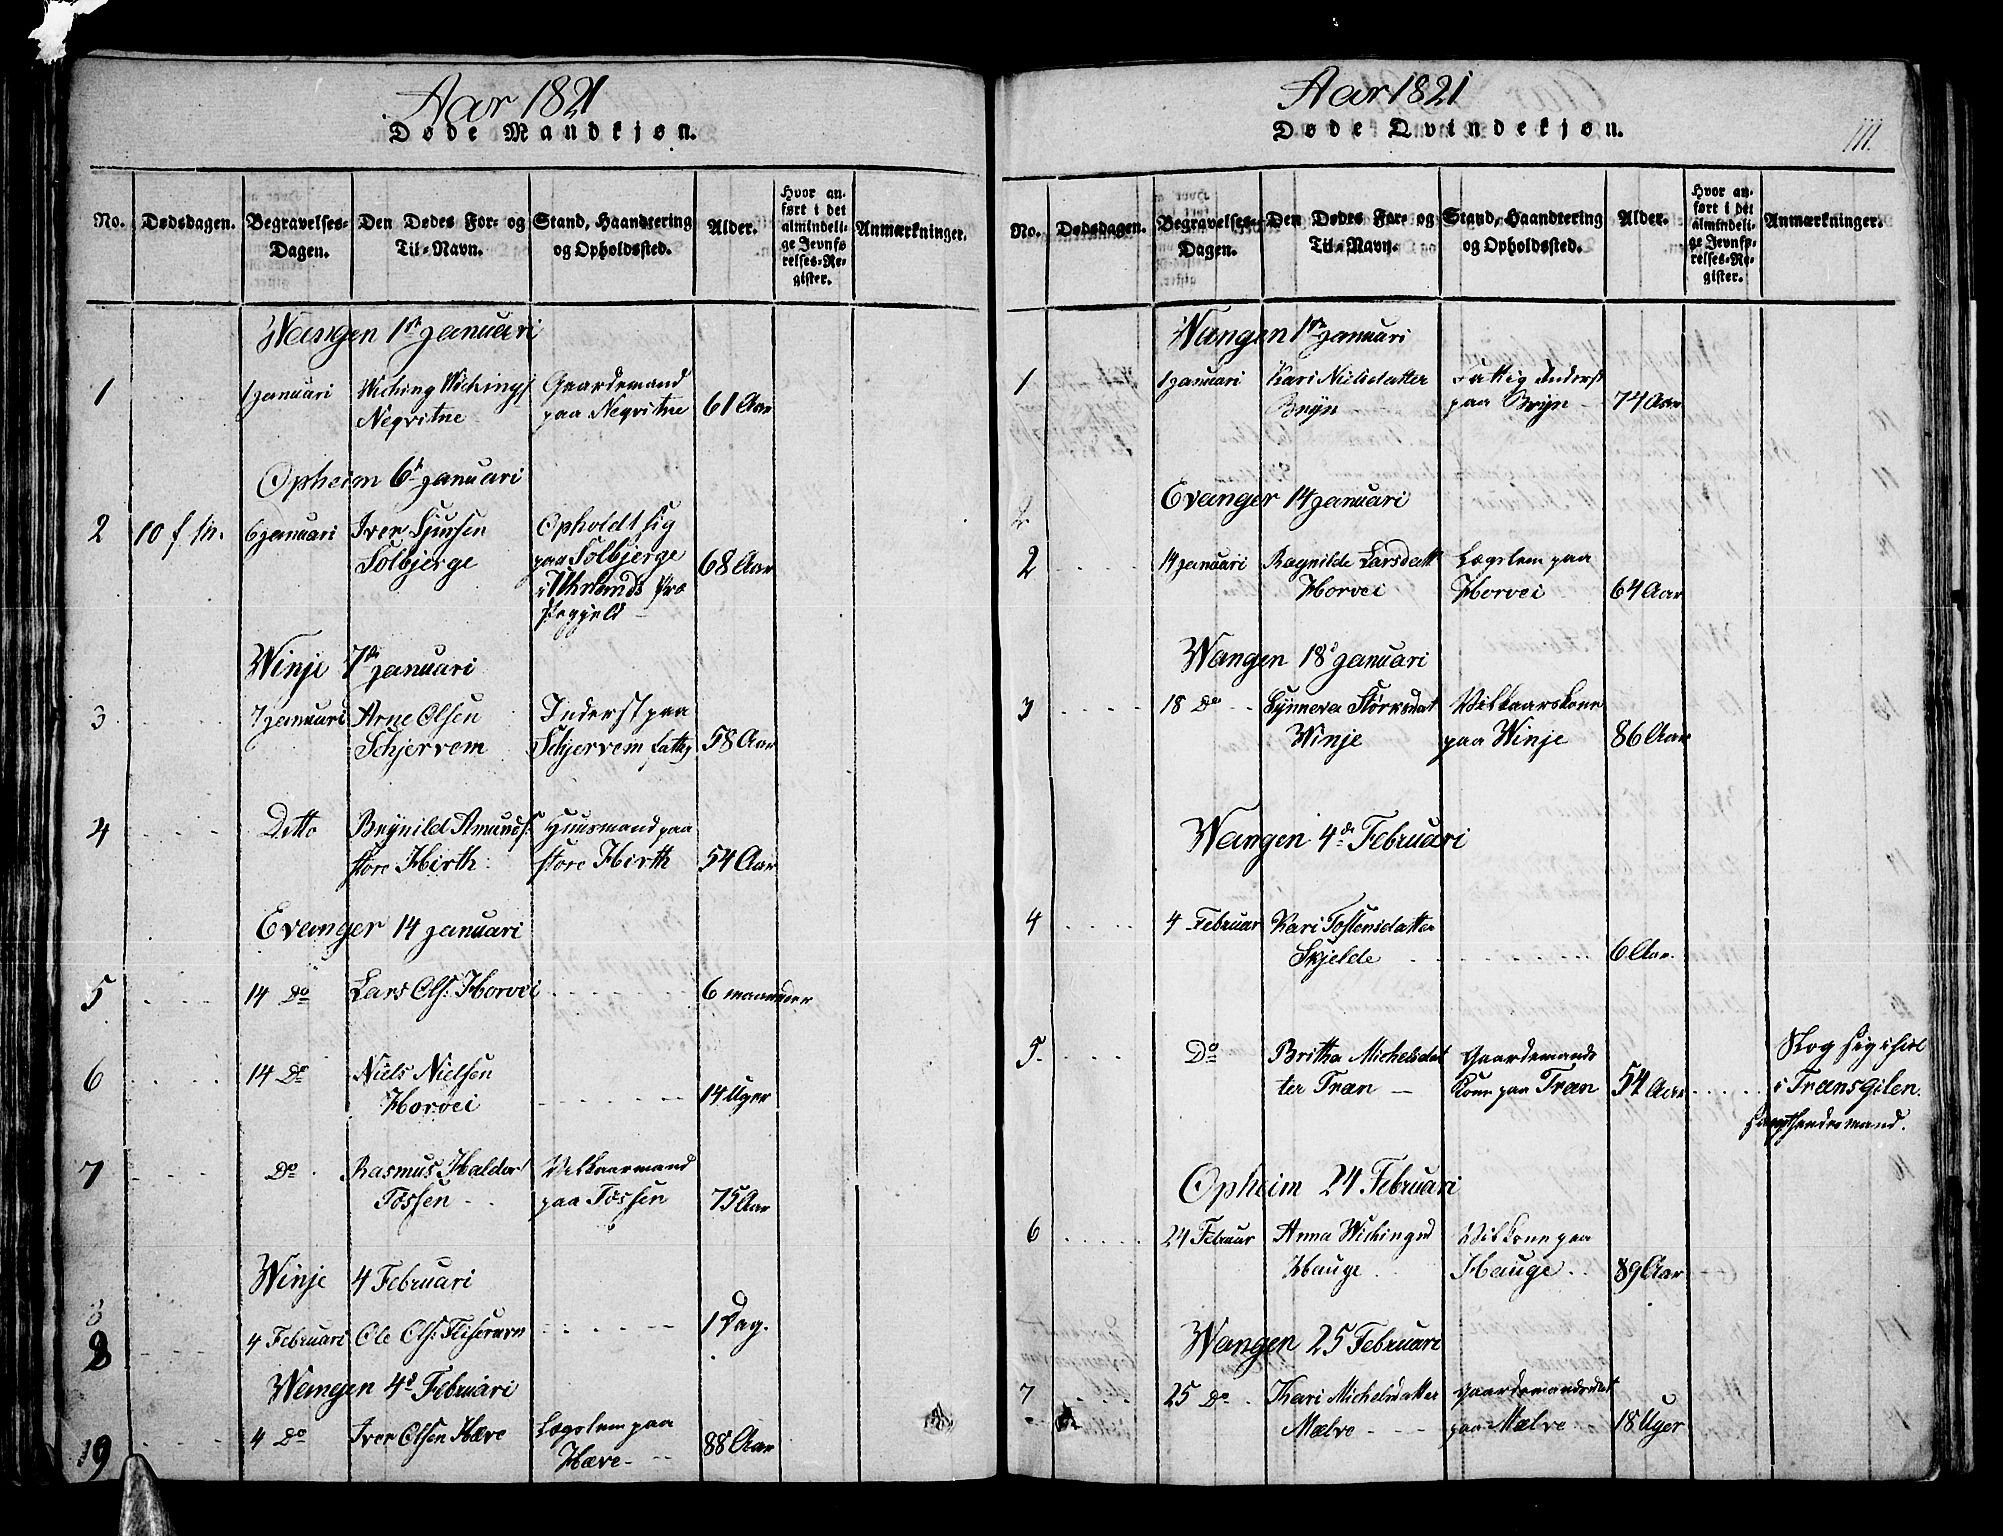 Aar 1821
Døde Mandkjøn.
No. Dødsdagen. Begravelses-Dagen. Den Dødes For- og Til-Navn. Stand, Haandtering og Opholdssted. Alder. Hvor anført i det almindelige Jevnførelses-Register. Anmærkninger.
Wangen 1ste januari
1 1 januari Wiching Wichings Gaardemand
Neqvitne paa Neqvitne 61 Aar
Opheim 6te januari
2 10 f. M. 6 januari Iver Sjursen Opholdt sig
Solbjerge paa Solbjerge 68 Aar
i Præ
stegjeld
Winje 7de januari
3 7 januari Arne Olsen Inderst paa
Schjervem Schjervem fattig 58 Aar
4 Ditto Brynild Amunds: Huusmand paa
store Hirth store Hirth 54 Aar
Evanger 14 januari
5 14 Do Lars Ols: Horvei 6 maaneder
6 14 Do Niels Nielsen
Horvei 14 Uger
7 Do Rasmus Haldor Vilkaarmand
Tøssen paa Tøssen 75 Aar
Winje 4 Februari
8 4 Februari Ole Ols: 1 Dag.
Wangen 4de Februari
9 4 Do Iver Olsen Hæve Lægslem paa
Hæve 88 Aar
Aar 1821
Døde Qvindekjøn.
111.
No. Dødsdagen. Begravelses-Dagen. Den Dødes For- og Til-Navn. Stand, Haandtering og Opholdssted. Alder. Hvor anført i det almindelige Jevnførelses-Register. Anmærkninger.
Wangen 1ste januari
1 1 januari Kari Nielsdatter Fattig Inderst
Bryn paa Bryn 74 Aar
Evanger 14 januari
2
2 14 januari Ragnilde Larsdatt Lægslem paa
Horvei Horvei 64 Aar
Wangen 18 januari
3 18 Do Synneva Størksdat Vilkaarskone
Winje paa Winje 86 Aar
Wangen 4de Februari
4 4 Februar Kari Tostensdatter
Skjelde 6 Aar
5. Do Britha Michelsdat Gaardemands Slog sig ihiel
ter Træn Kone paa Træn 54 Aar i Trænsgilen.
Opheim 24 Februari
6 24 Februar Anna Wichingsd Vilkone paa
Hauge Hauge 89 Aar
Wangen 25 Februari
7 25 Do Kari Michelsdatter Gaardemandsdat
Mælve paa Mælve 18 Uger